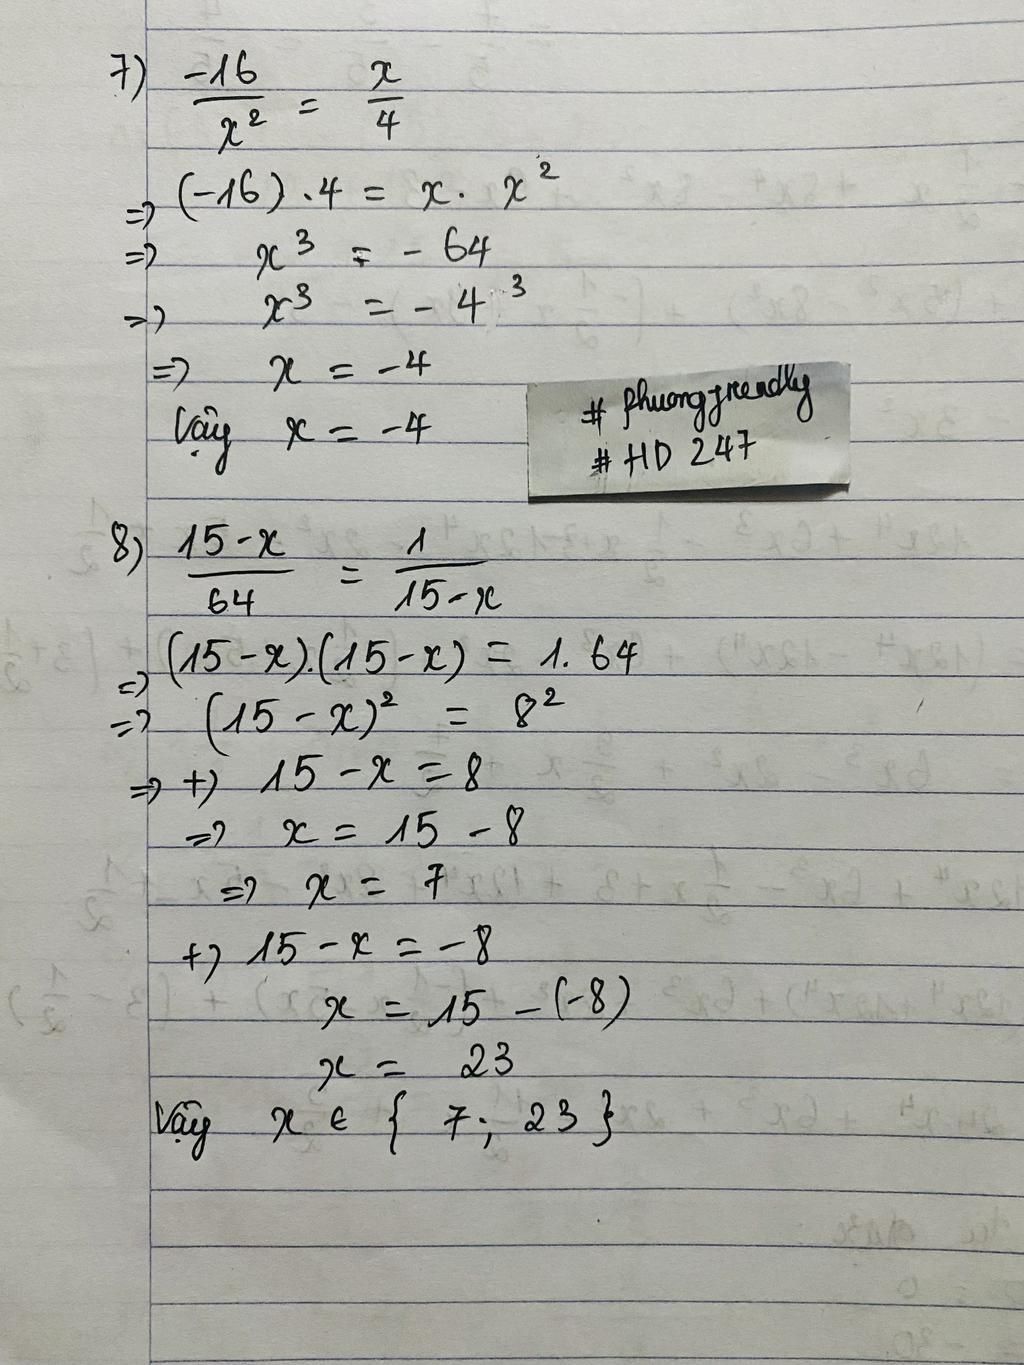 7) -16/x² = x/4
=> (-16) . 4 = x . x²
=> x³ = - 64
=> x³ = - 4³
=> x = -4
Vậy x = -4
# phuongfriendly
# HD 247
8) 15-x/64 = 1/15-x
=> (15-x).(15-x) = 1.64
=> (15-x)² = 8²
=> +) 15-x = 8
=> x = 15 - 8
=> x = 7
+) 15-x = -8
x = 15 - (-8)
x = 23
Vậy x ∈ { 7; 23 }